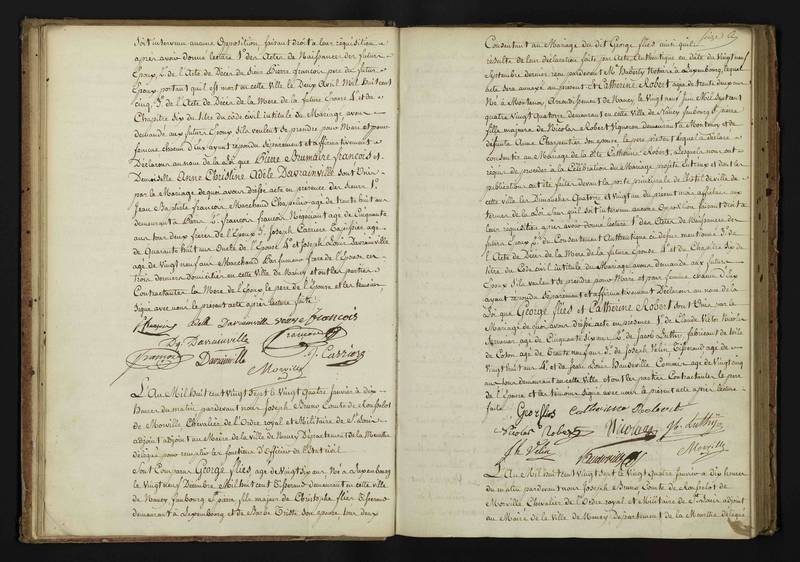 Soit intervenu aucune Opposition, faisant droit à leur réquisition
après avoir donné lecture 1° des Actes de Naissances des futurs
Epoux, 2° de l'Acte de Décès du Sieur Pierre François père du futur
Epoux portant qu'il est mort en cette Ville le Deux Avril Mil huit cent
cinq 3° de l'Acte de Décès de la Mère de la future Epouse 4° et du
Chapitre Six du titre du Code civil intitulé du Mariage, avons
demandé aux futurs Epoux s'ils veulent se prendre pour Mari et pour
femme chacun d'eux ayant répondu séparément et affirmativement
Déclarons au nom de la Loi que Pierre Brumaire François et
Demoiselle Anne Christine Adèle Davrainville sont Unis
par le Mariage de quoi avons dressé acte en présence des Sieurs 1°
Jean Baptiste François Marchand Chapelier agé de trente huit ans
demeurant à Paris 2° François François Négociant agé de Cinquante
ans tous deux frères de l'Epoux 3° Joseph Carriere Tapissier, agé
de Quarante huit ans Oncle de l'Epouse 4° et Joseph Louis Davrainville
agé de Vingt neuf ans Marchand Parfumeur frère de l'Epouse ces
trois derniers domiciliés en cette Ville de Nancy et ont les parties
Contractantes la Mère de l'Epoux le père de l'Epouse et les témoins,
Signé avec nous le présent acte après lecture faite.
François Adèle Davrainville veuve françois
Dq. Davrainville françois
françois Davrainville J. Carriere
Morville
L'An Mil huit cent Vingt Sept le Vingt quatre Janvier à dix
heures du matin, pardevant nous Joseph Bruno Comte de Rousselot
de Morville Chevalier de l'Ordre royal et Militaire de St Louis
adjoint au Maire de la Ville de Nancy Département de la Meurthe
délégué pour remplir les fonctions d'Officier de l'état Civil
Sont Comparus George flies, agé de Vingt six ans Né à Luxembourg
le Vingt neuf Décembre Mil huit cent Tisserand demeurant en cette ville
de Nancy faubourg St pierre fils majeur de Christophe flies Tisserand
demeurant à Luxembourg et de Barbe son épouse tous deux
Consentant au Mariage du dit George flies ainsi qu'il
résulte de leur déclaration faite par acte Authentique en date du Vingt neuf
Septembre dernier reçu pardevant Me Notaire à Luxembourg, lequel
acte sera annexé au présent Et Catherine Robert agée de trente deux ans
Née à Arrondissement de Nancy le Vingt neuf Juin Mil sept cent
quatre Vingt quatorze demeurant en cette Ville de Nancy faubourg St pierre
fille majeure de Nicolas Robert Vigneron demeurant à et de
défunte Anne Charpentier son épouse le père présent lequel a déclaré
consentir au Mariage de la dite Catherine Robert, Lesquels nous ont
requis de procéder à la Célébration du Mariage projeté entre eux et dont les
publications ont été faites devant la porte principale de l'hôtel de ville de
cette Ville les Dimanches Quatorze et Vingt un du présent mois affichées aux
termes de la Loi Sans qu'il soit intervenu aucune Opposition faisant droit à
leur réquisition après avoir donné lecture 1° des Actes de Naissances des
futurs Epoux 2° du Consentement Authentique ci dessus mentionné 3° de
l'Acte de Décès de la Mère de la future Epouse 4° et du Chapitre Six du
titre du Code civil intitulé du Mariage avons demandé aux futurs
Epoux s'ils veulent se prendre pour Mari et pour femme, chacun d'eux
ayant répondu séparément et affirmativement Déclarons au nom de la
Loi que George flies et Catherine Robert sont Unis par le
Mariage de quoi avons dressé acte en présence 1° de Claude Victor Nicolas
agé de Cinquante six ans 2° de Jacob Luthy, fabricant de toile
de Coton agé de Trente neuf ans 3° de Joseph Velin Tisserand agé de
Vingt huit ans 4° et de Jean Louis Baudeville Commis agé de Vingt cinq
ans tous demeurant en cette Ville et ont les parties Contractantes le père
de l'Epouse et les témoins Signé avec nous le présent acte après lecture
faite. Georg flies Catherinne Roobert
Nicolas Robert Nicolas Jb. Luthy
Jh Velin Baudeville Morville
L'An Mil huit cent Vingt Sept le Vingt quatre Janvier à dix heures
du matin pardevant nous Joseph Bruno Comte de Rousselot de
Morville Chevalier de l'Ordre royal et Militaire de St Louis adjoint
au Maire de la Ville de Nancy département de la Meurthe délégué